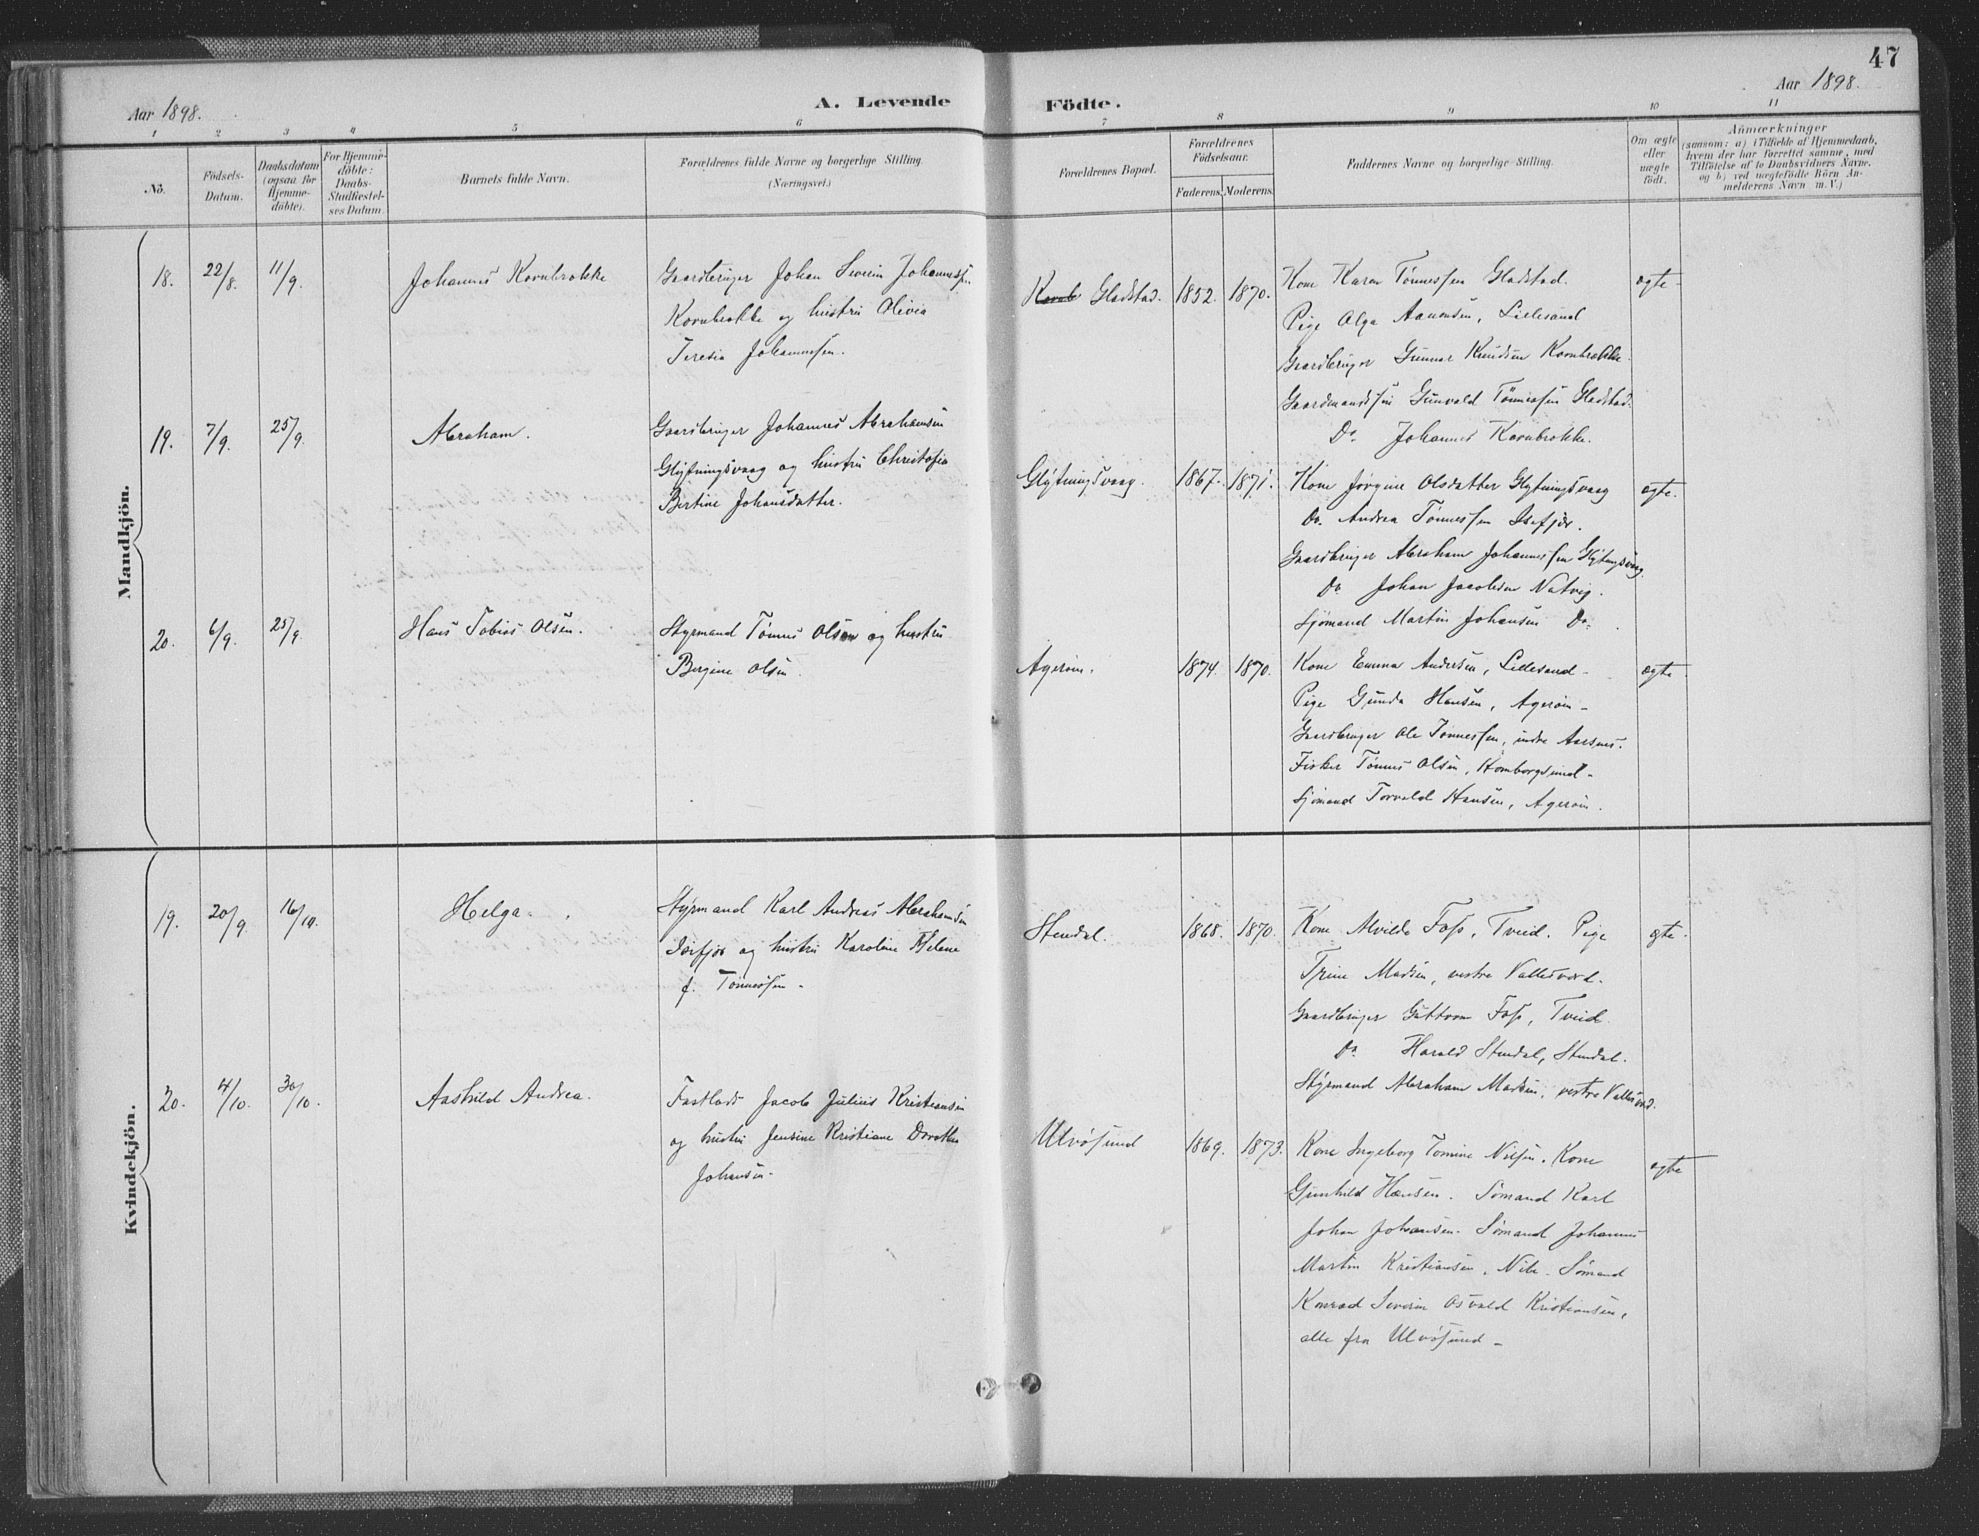 47
Aar 1898.
A. Levende
Födte.
Aar 1898.
1 2 3 4 5 6 7 8 9 10 11
No.
Födsels-
Datum.
Daabsdatum
(ogsaa for
Hjemme-
döbte).
For Hjemme-
döbte:
Daabs-
Stadfæstel-
ses Datum.
Barnets fulde Navn.
Forældrenes fulde Navne og borgerlige Stilling.
(Næringsvei.)
Forældrenes Bopæl.
Forældrenes
Födselsaar.
Faderens. Moderens.
Faddernes Navne og borgerlige Stilling.
Om ægte
eller
uægte
födt.
Anmærkninger
(saasom: a) i Tilfælde af Hjemmedaab,
hvem der har forrettet samme, med
Tilföielse af to Daabsvidners Navne,
og b) ved uægtefödte Börn An-
melderens Navn m. V.)
Mandkjön.
18. 22/8. 11/9. Johannes Kornbrokke
Gaardbruger Johan Severin Johannessen
Kornbrokke og hustru Olivia
Teresia Johannessen.
Kornb Gladstad. 1852. 1870.
Kone Karen Tönnessen Gladstad.
Pige Olga Aanonsen, Lillesand
Gaardbruger Gunnar Knudsen Kornbrokke.
Gaardmandssön Gunvald Tönnessen Gladstad.
Do. Johannes Kornbrokke.
ægte
19. 7/9. 25/9. Abraham.
Gaardbruger Johannes Abrahamsen
Glytningsvaag og hustru Christofia
Bertine Johansdatter.
Glytningsvaag. 1867. 1871.
Kone Jörgine Olsdatter Glytningsvaag
Do. Andrea Tönnessen Isefjær.
Gaardbruger Abraham Johannessen Glytningsvaag.
Do Johan Jacobsen Natvig.
Sjömand Martin Johansen Do.
ægte.
20. 6/9. 25/9. Hans Tobias Olsen.
Styrmand Tönnes Olsen og hustru
Bergine Olsen.
Agerøen. 1874. 1870.
Kone Emma Andersen, Lillesand
Pige Gunda Hansen, Agerøen
Gaardbruger Ole Tönnessen, indre Aarsnes.
Fisker Tönnes Olsen, Homborgsund
Sjömand Torvald Hansen, Agerøen.
ægte
Kvindekjön.
19. 20/9. 16/10. Helga.
Styrmand Karl Andreas Abrahamsen
Isefjær og hustru Karoline Helene
f. Tönnessen
Stendal. 1868. 1870.
Kone Alvilde Foss, Tveid. Pige
Trine Madsen, vestre Vallesværd.
Gaardbruger Guttorm Foss, Tveid
Do. Harald Stendal, Stendal.
Styrmand Abraham Madsen, vestre Vallesværd.
ægte.
20. 4/10. 30/10. Aashild Andrea.
Fastlods Jacob Julius Kristiansen
og hustru Jensine Kristiane Dorothea
Johansen
Ulvösund 1869. 1873.
Kone Ingeborg Tomine Nilsen. Kone
Gunhild Hansen. Sömand Karl
Johan Johansen. Sömand Johannes
Martin Kristiansen, Sömand
Konrad Severin Osvald Kristiansen,
alle fra Ulvösund
ægte